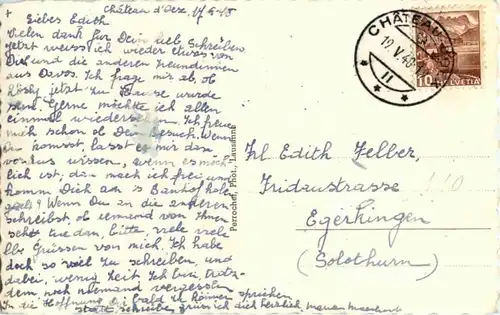 Château d'Oex, 17.5.40
Liebes Edith
Vielen dank für Dein lieb Schreiben
Jetzt weiss ich wieder etwas von
Dir und die anderen Freundinnen
aus Davos. Ich frage mir ab, ob
jetzt zu Hause wurde
sein. Gerne möchte ich allen
einmal wiedersehen. Ich freue
mich schon ob Dein Besuch. Wenn
Du kommst, lasst es mir dan
voraus wissen, wenn es mög-
lich ist; dan mach ich frei und
komm Dich am Bahnhof holen
Wenn Du an die anderen
schreibst, ob jemand von Ihnen
tue dan, bitte, viele viele
Grüssen von mich. Ich habe
doch so viel zu schreiben, und
dabei, wenig Zeit. Ich bin, trotz-
dem noch niemand vergessen
In die Hoffnung bald zu können sprechen
grüss ich dich herzlich
Perrochet, Phot., Lausanne
CHÂTEAU
19.V.40
11
10
HELVETIA
Frl Edith Felber,
Fridaustrasse
Egerkingen
(Solothurn)